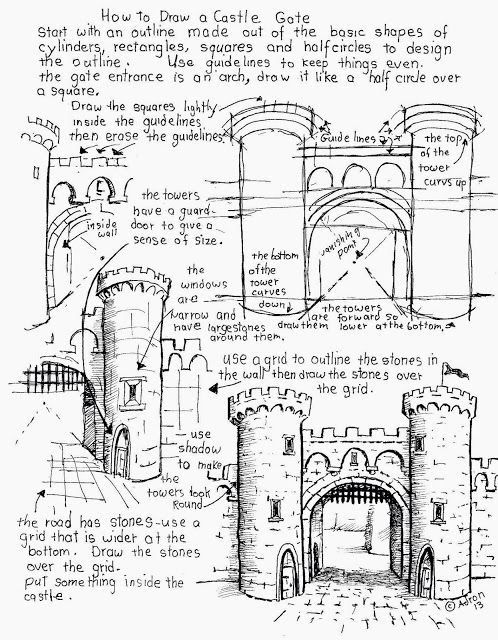 How to Draw a Castle Gate
Start with an outline made out of the basic shapes of
cylinders, rectangles, squares and halfcircles to design
the outline. Use guidelines to keep things even.
the gate entrance is an arch, draw it like a half circle over
a square.
Draw the squares lightly
inside the guidelines
then erase the guidelines
Guide lines
the top
of the
tower
curvs up
inside
wall
the towers
have a guard-
door to give a
sense of size.
vanishing
point
the bottom
of the
tower
curves
down
the towers
are forward so
draw them lower at the bottom.
the
windows
are
narrow and
have largestones
around them.
use a grid to outline the stones in
the wall then draw the stones over
the grid.
use
shadow
to make
the
towers took
Round
the road has stones-use a
grid that is wider at the
bottom. Draw the stones
over the grid.
put something inside the
castle.
© Adron
13